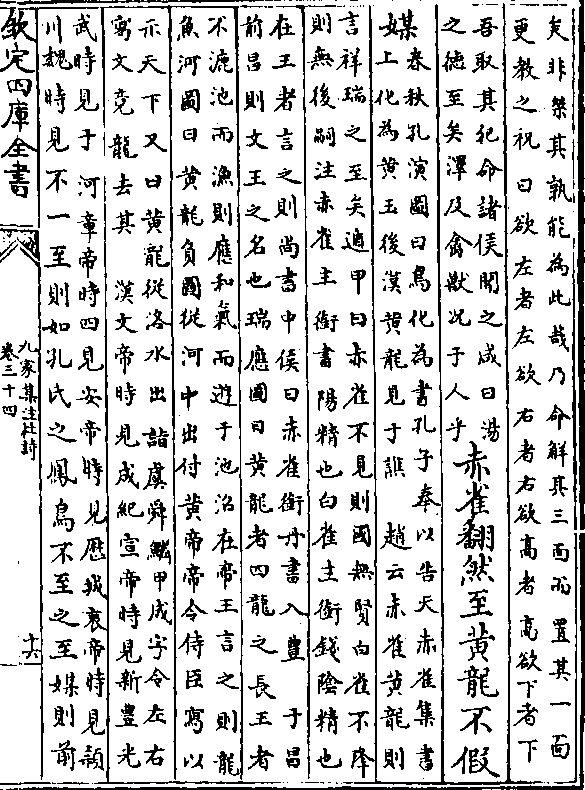 矣非桀其孰能為此哉乃命解其三面而置其一面
更教之祝曰欲左者左欲右者右欲高者高欲下者下
吾取其犯命諸侯聞之咸曰湯
之德至矣澤及禽獸况于人乎
赤雀翻然至黄龍不假
媒
春秋孔演圖曰鳥化為書孔子奉以告天赤雀集書
上化為黄玉後漢黄龍見于譙 趙云赤雀黄龍則
言祥瑞之至矣遁甲曰赤雀不見則國無賢白雀不降
則無後嗣注赤雀主銜書陽精也白雀主銜錢陰精也
在王者言之則尚書中侯曰赤雀銜丹書入豐 于昌
前昌則文王之名也瑞應圖曰黄龍者四龍之長王者
不漉池而漁則應和氣而遊于池沼在帝王言之則龍
魚河圖曰黄龍負圖從河中出付黄帝帝令侍臣寫以
示天下又曰黄龍從洛水出詣虞舜鱗甲成字令左右
寫文竟龍去其 漢文帝時見成紀宣帝時見新豐光
武時見于河章帝時四見安帝時見歴城哀帝時見潁
川魏時見不一至則如孔氏之鳳鳥不至之至媒則前
欽定四庫全書
九家集注杜詩
卷三十四
十六